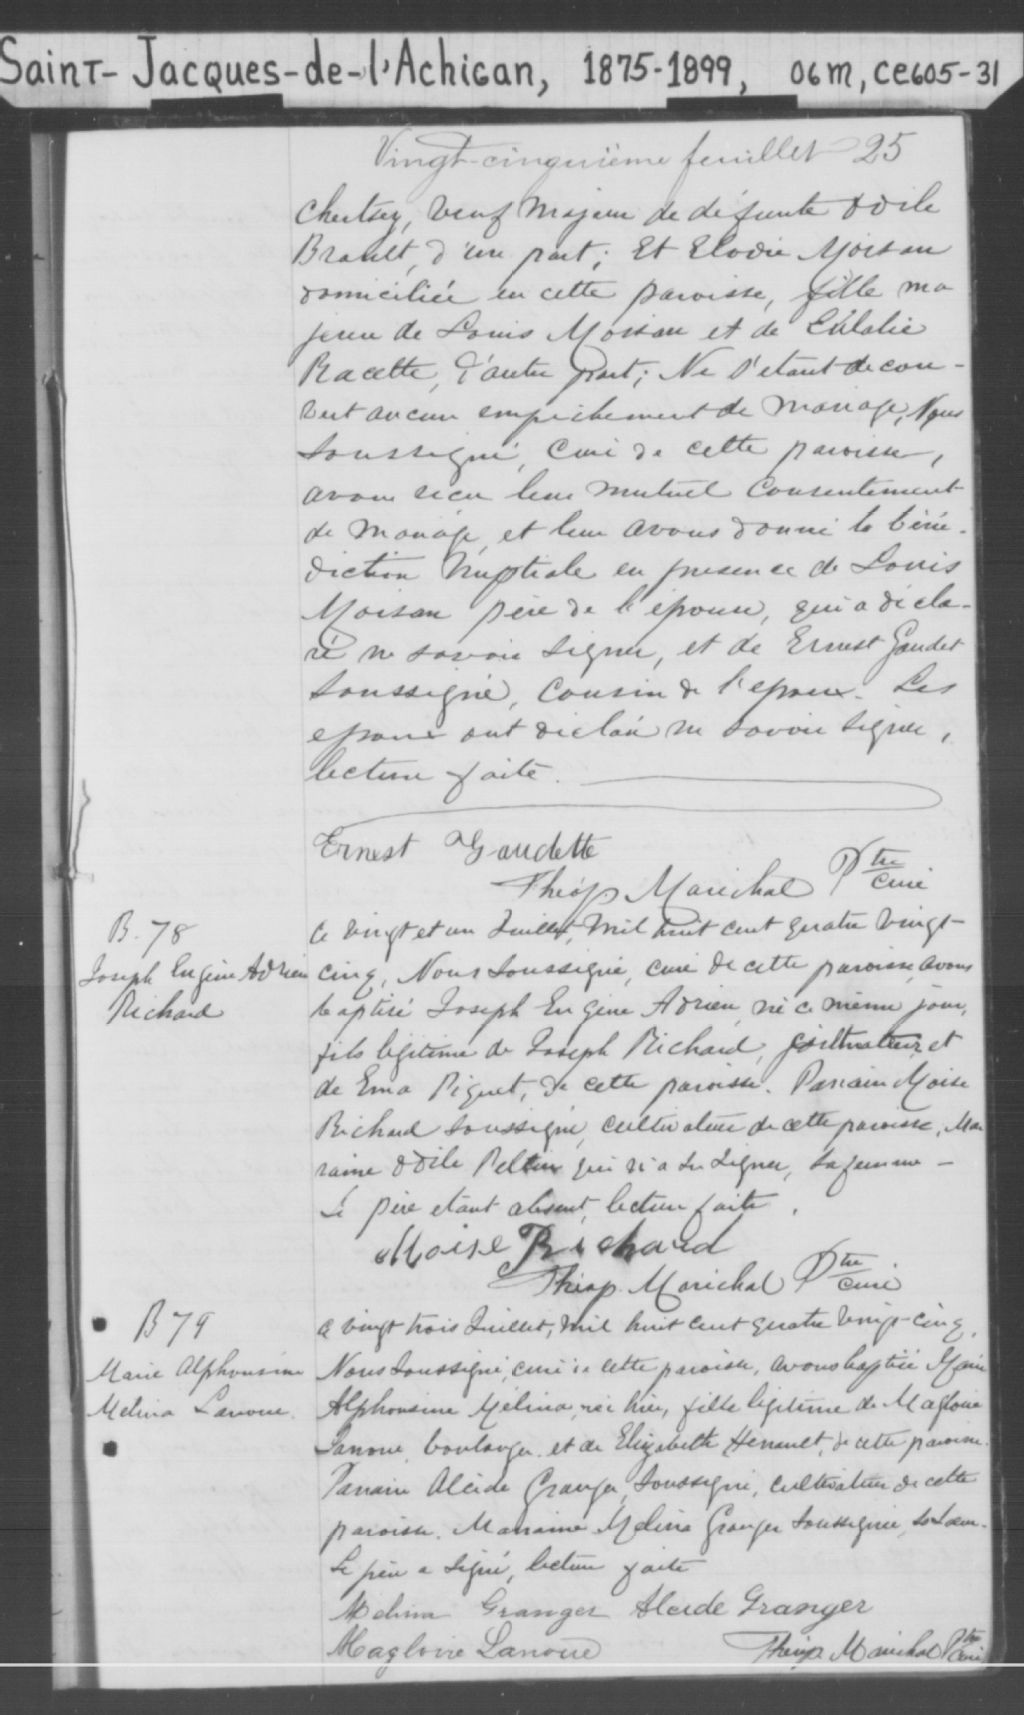 Saint-Jacques-de-l'Achigan, 1875-1899, 06M, CE605-31
Vingt-cinquième feuillet 25
Chertsey, veuf majeur de défunte Odile
Brault, d'une part; Et Elodie Moisan
domiciliée en cette paroisse, fille ma
jeure de Louis Moisan et de Eulalie
Racette, d'autre part; Ne s'etant decou-
vert aucun empêchement de mariage, Nous
soussigné, curé de cette paroisse,
avons recu leur mutuel consentement
de mariage, et leur avons donné la béné-
diction nuptiale en presence de Louis
Moisan père de l'épouse, qui a décla-
ré ne savoir signer, et de Ernest Gaudet
soussigné, cousin de l'epoux. Les
epoux ont déclaré ne savoir signer,
lecture faite.
Ernest Gaudette
Théop Marichal Ptre curé
B. 78
Joseph Eugène Adrien
Richard
Ce vingt et un Juillet, mil huit cent quatre vingt-
cinq, Nous soussigné, curé de cette paroisse, avons
baptisé Joseph Eugène Adrien, né ce même jour,
fils légitime de Joseph Richard, cultivateur, et
de Ema Piquet, de cette paroisse. Parrain Moise
Richard soussigné, cultivateur de cette paroisse, Mar
raine Odile Pelletier qui n'a su signer, sa femme -
Le père etant absent, lecture faite.
Moise Richard
Théop. Marichal Ptre curé
B 79
Marie Alphonsine
Melina Lanoue.
Ce vingt trois Juillet, mil huit cent quatre vingt-cinq,
Nous soussigné, curé de cette paroisse, avons baptisé Marie
Alphonsine Mélina, née hier, fille légitime de Magloire
Lanoue, boulanger et de Elizabeth Henault, de cette paroisse.
Parrain Alcide Granger, soussigné, cultivateur de cette
paroisse. Marraine Melina Granger soussignée, sa soeur.
Le père a signé, lecture faite
Melina Granger Alcide Granger
Magloire Lanoue Théop. Marichal Ptre curé